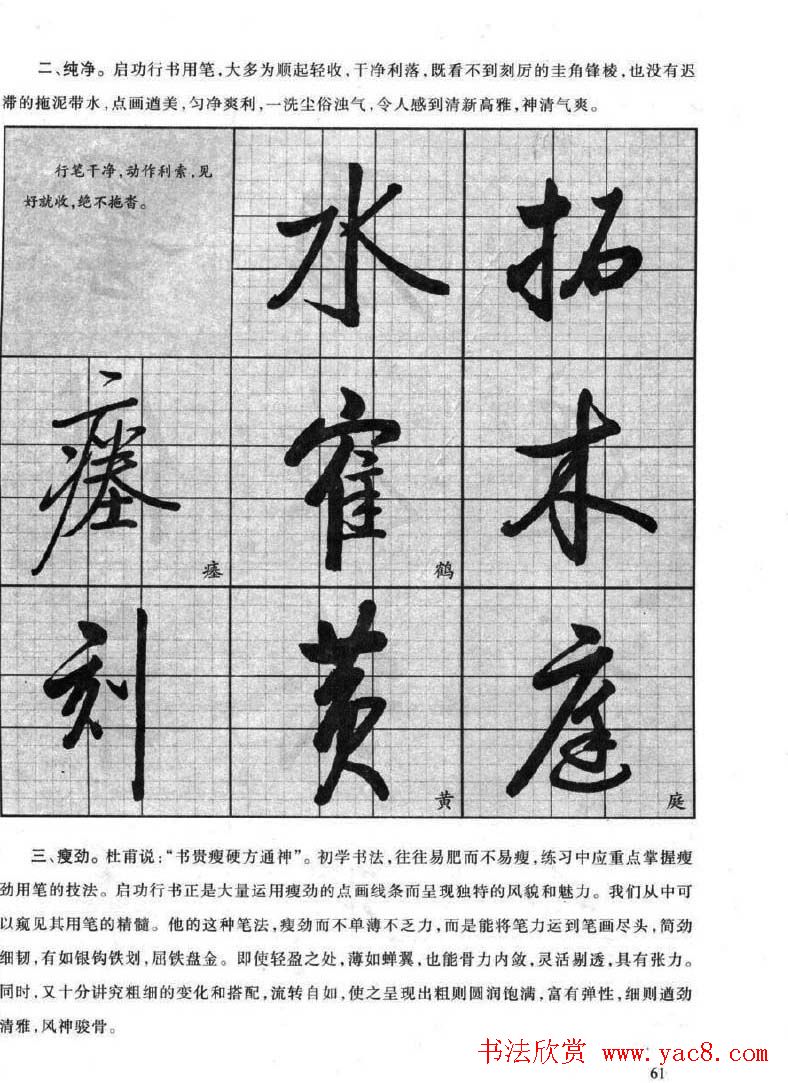 二、纯净。启功行书用笔,大多为顺起轻收,干净利落,既看不到刻厉的圭角锋棱,也没有迟
滞的拖泥带水,点画遒美,匀净爽利,一洗尘俗浊气,令人感到清新高雅,神清气爽。
行笔干净,动作利索,见
好就收,绝不拖沓。
水 拓
瘗 寉 木
瘗 鹤
刻 黄 庭
黄 庭
三、瘦劲。杜甫说:“书贵瘦硬方通神”。初学书法,往往易肥而不易瘦,练习中应重点掌握瘦
劲用笔的技法。启功行书正是大量运用瘦劲的点画线条而呈现独特的风貌和魅力。我们从中可
以窥见其用笔的精髓。他的这种笔法,瘦劲而不单薄不乏力,而是能将笔力运到笔画尽头,简劲
细韧,有如银钩铁划,屈铁盘金。即使轻盈之处,薄如蝉翼,也能骨力内敛,灵活剔透,具有张力。
同时,又十分讲究粗细的变化和搭配,流转自如,使之呈现出粗则圆润饱满,富有弹性,细则遒劲
清雅,风神骏骨。
书法欣赏 www.yac8.com
61